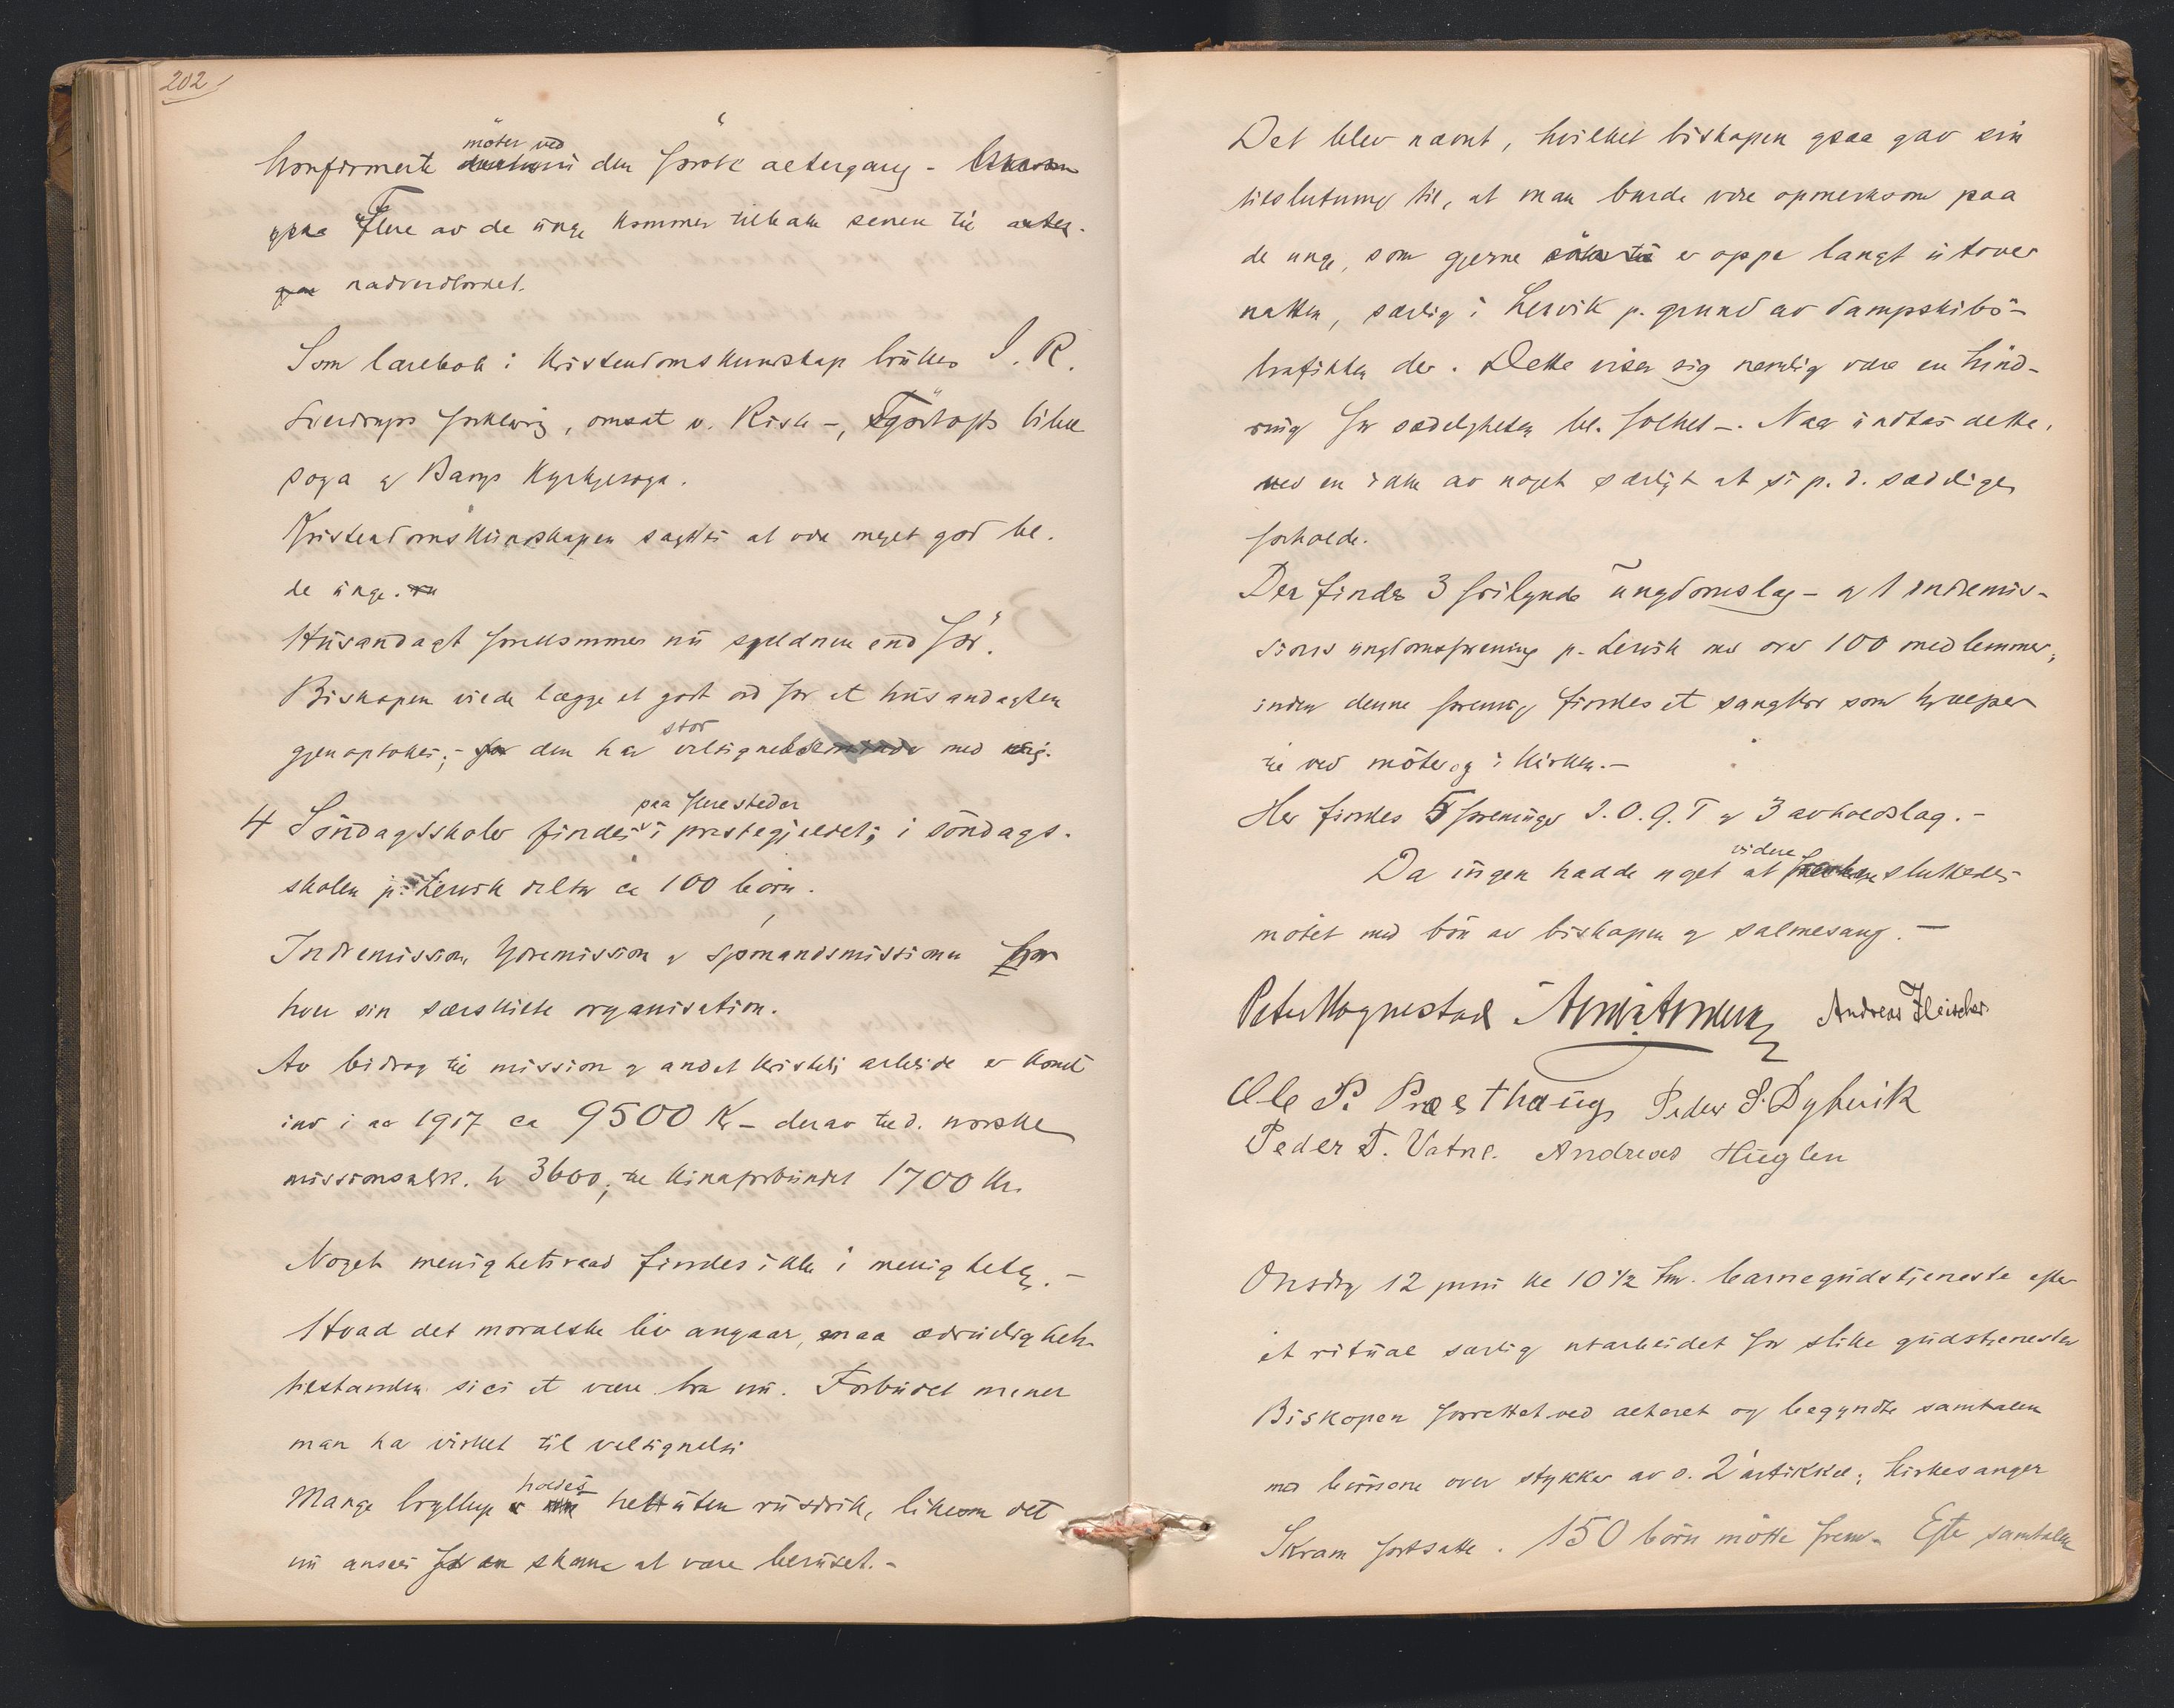 202
møter ved
konfirmerte den første altergang -
Flere av de unge kommer tilbake senere til
nadverdbordet.
Som lærebok i kristendomskunskap brukes J. R.
Sverdrups forklaring, omsat v. Risa -, Tjørhofts bibel
soga og Bangs Kyrkjesoga.
Kristendomskunskapen sagdes at være meget god bl.
de unge.
Husandagt forekommer nu sjeldnere end før.
Biskopen vilde lægge et godt ord for at husandagten
stor
gjenoptokes; - den har velsignelse med sig.
paa flere steder
4 Søndagsskoler findes i prestegjeldet; i søndags-
skolen p. Lervik deltar ca 100 børn.
Indremission, Ydremission og Sjømandsmissionen har
hver sin særskilte organisation.
Av bidrag til mission og andet kristelig arbeide er komet
ind i aar 1917 ca 9500 Kr - derav til d. norske
missionselsk. kr 3600; til Kinaforbundet 1700 Kr.
Noget menighetsraad findes ikke i menigheten. -
Hvad det moralske liv angaar, maa ædruelighets-
tilstanden sies at være bra nu. Forbudet mener
man har virket til velsignelse
holdes
Mange bryllup helt uten rusdrik, likesom det
nu ansees for en skam at være beruset. -
Det blev nævnt, hvilket biskopen ogsaa gav sin
tilslutning til, at man burde være opmerksom paa
de unge, som gjerne er oppe langt utover
natten, særlig i Lervik p. grund av dampskibs-
trafikken der. Dette viser sig nemlig være en hind-
ring for sædeligheten bl. folket -. Naar undtas dette,
var der ikke av noget særligt at si p. d. sædelige
forhold.
Der findes 3 frilynde ungdomslag - og 1 indremis-
sions ungdomsforening p. Lervik med over 100 medlemmer,
inden denne forening findes et sangkor som hjælper
til ved møter og i kirken. -
Her findes 5 foreninger I.O.G.T og 3 avholdslag. -
videre
Da ingen hadde noget at sluttedes
møtet med bøn av biskopen og salmesang. -
Peter Hognestad Andreas Fleischer
Ole P. Præsthaug Peder S. Dyhvik
Peder T. Vatne. Andreas Huglen
Onsdag 12 juni kl 10 1/2 fm. barnegudstjeneste efter
et ritual særlig utarbeidet for slike gudstjenester
Biskopen forrettet ved alteret og begyndte samtalen
med børnene over stykker av d. 2 artikkel; kirkesanger
Skram fortsatte. 150 børn møtte frem. Efter samtalen